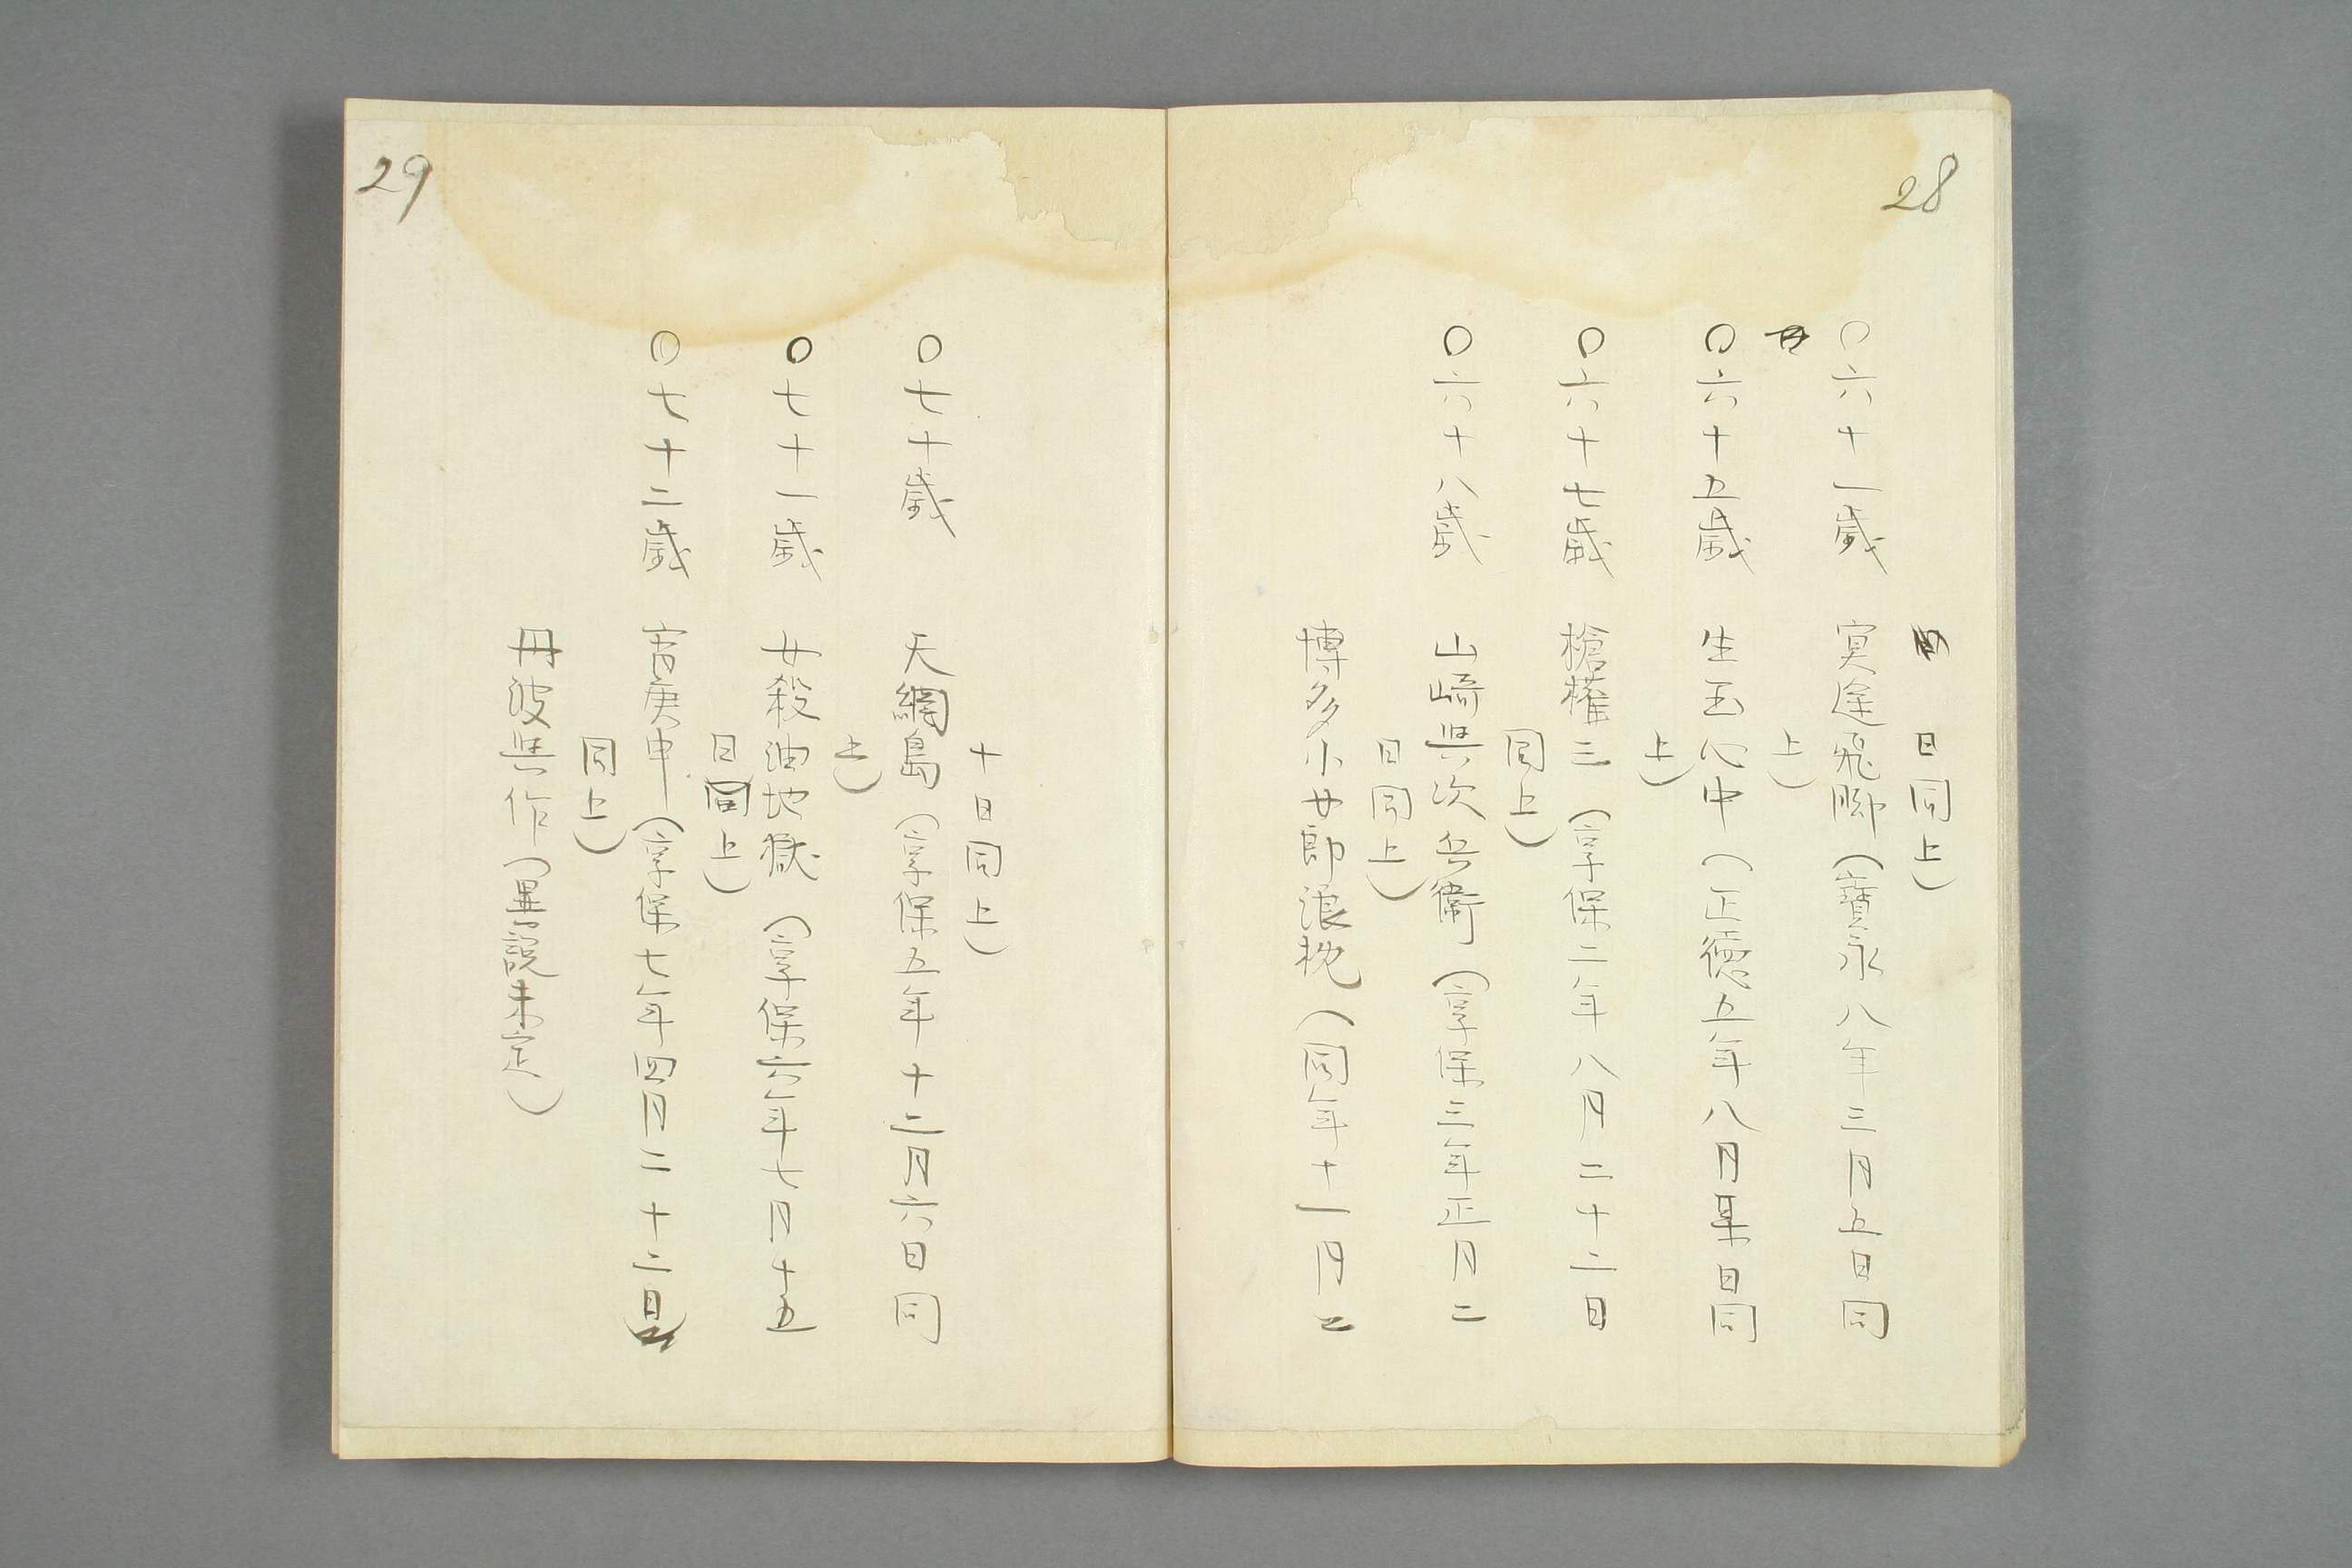 28
日同上)
〇六十一歳 冥途飛脚(寶永八年三月五日同
上)
〇六十五歳 生玉心中(正徳五年八月某日同
上)
〇六十七歳 槍権三(享保二年八月二十二日
同上)
〇六十八歳 山崎與次兵衛(享保三年正月二
日同上)
博多小女郎浪枕(同年十一月二
十日同上)
〇七十歳 天網島(享保五年十二月六日同
上)
〇七十一歳 女殺油地獄(享保六年七月十五
日同上)
〇七十二歳 宵庚申(享保七年四月二十二日
同上)
丹波與作(異説未定)
29